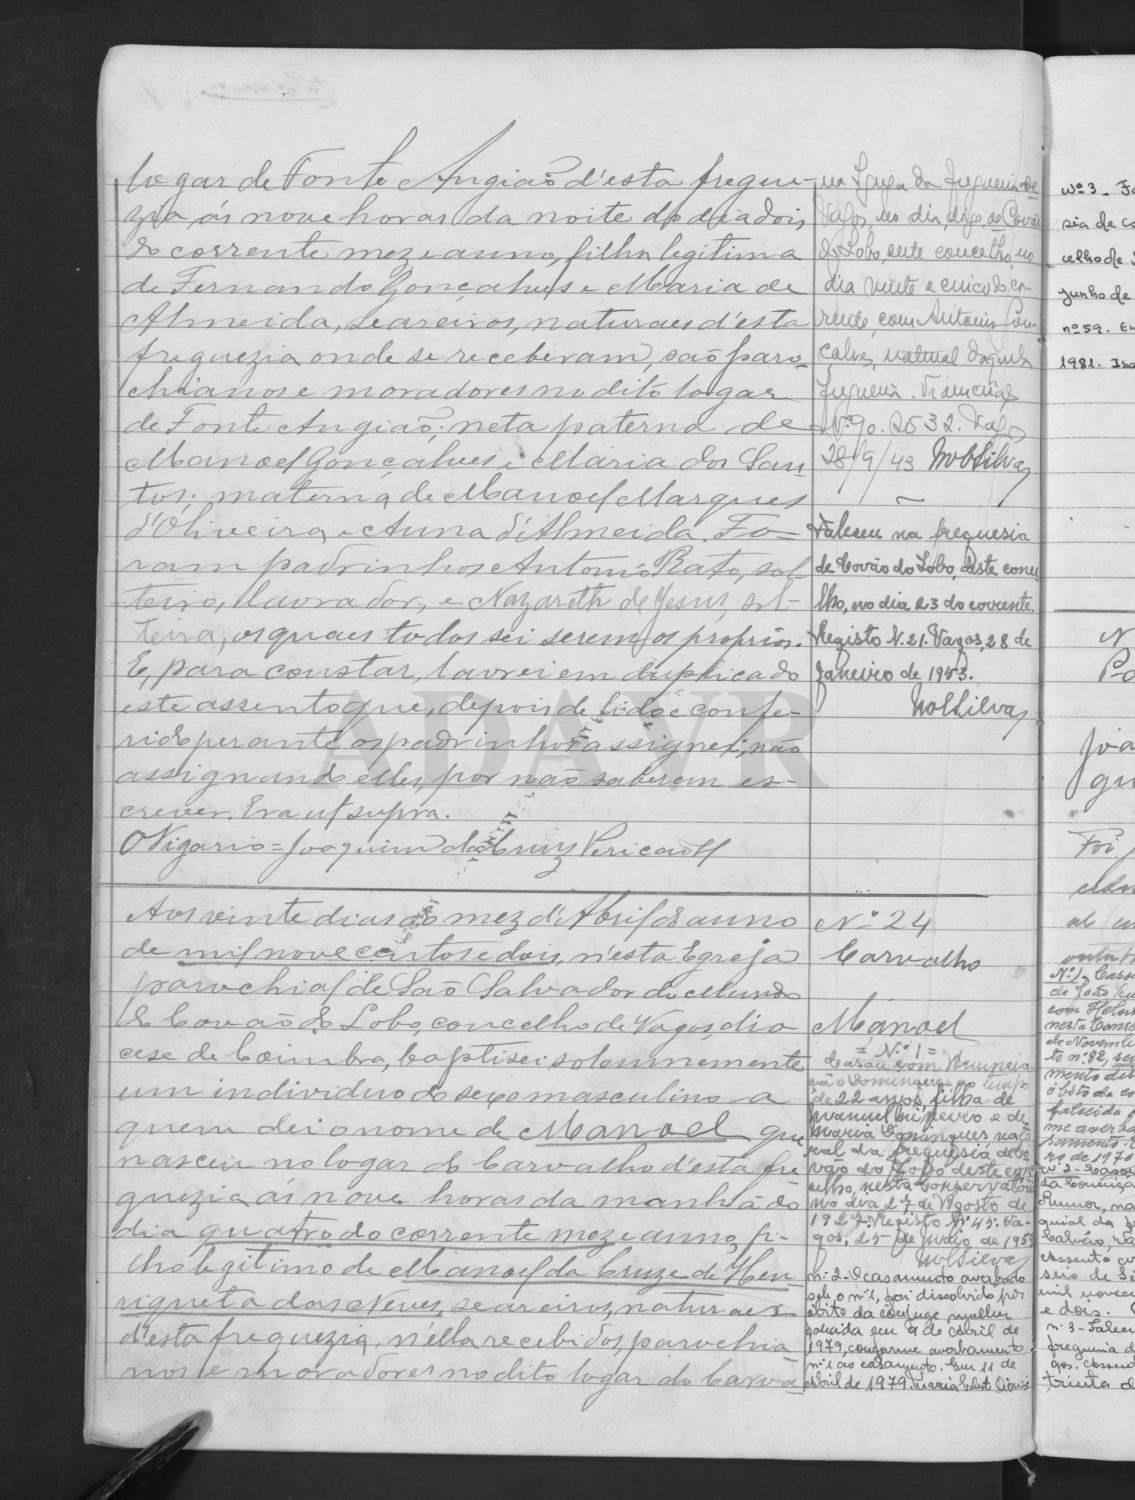 logar de Fonte Angião d'esta fregue-
zia, ás nove horas da noite do dia dois,
do corrente mez e anno, filha legitima
de Fernando Gonçalves e Maria de
Almeida, seareiros, naturaes d'esta
freguezia onde se receberam, são paro-
chianos e moradores no dito logar
de Fonte Angião; neta paterna de
Manoel Gonçalves e Maria dos San-
tos; materna de Manoel Marques
d'Oliveira e Anna d'Almeida. Fo-
ram padrinhos Antonio Rato, sol-
teiro, lavrador, e Nazareth de Jesus, sol-
teira, os quaes todos sei serem os proprios.
E, para constar, lavrei em duplicado
este assento que, depois de lido e confe-
rido perante os padrinhos assignei; não
assignando elles, por não saberem es-
crever. Era ut supra.
O Vigario = Joaquim da Cruz Pericão
na Igreja da freguesia de
Vagos, no dia, digo, de Covão
do Lobo, deste concelho, no
dia vinte e cinco do cor-
rente, com Antonio Gon-
çalves, natural daquela
freguesia.
Nº 90. 2632. Vagos
28/9/43 MolSilvas
Faleceu na freguesia
de Covão do Lobo, deste conce-
lho, no dia 23 do corrente.
Registo N. 21. Vagos, 28 de
Janeiro de 1953.
MolSilvas
Aos vinte dias do mez d'Abril do anno
de mil nove centos e dois, n'esta Egreja
parochial de São Salvador do Mundo
de Covão do Lobo, concelho de Vagos, dio-
cese de Coimbra, baptisei solemnemente
um individuo do sexo masculino a
quem dei o nome de Manoel que
nasceu no logar do Carvalho d'esta fre-
guezia ás nove horas da manhã do
dia quatro do corrente mez e anno, fi-
lho legitimo de Manoel da Cruz e de Hen-
riqueta das Neves, seareiros, naturaes
d'esta freguezia, n'ella recebidos, parochia-
nos e moradores no dito logar do Carva-
Nº 24
Carvalho
Manoel
= N.º 1 =
Casou com Anuncia-
ção Domingues ao tempo
de 22 anos, filha de
Manuel e de
Maria Domingues natu-
ral da freguesia de Co-
vão do Lobo deste con-
celho, nesta Conservatória
no dia 27 de Agosto de
1927. Registo Nº 45. Va-
gos, 25 de Julho de 195
MolSilvas
nº 2 - O casamento averbado
sob o nº 1, foi dissolvido por
óbito da cônjuge mulher
falecida em 9 de Abril de
1979, conforme averbamento
nº 1 ao casamento. Em 11 de
Abril de 1979. Maria
Nº 3 - Fa
sia de C
celho de
Junho de
nº 59. Em
1981. Isa
N
joa
gu
Foi
Nº 1 - Casou
de João
com
nesta Conser
de Novemb
to nº 82,
mento
óbito da co
falecida
me averba
samento.
ro de 1970
nº 2 - Casou
da Conceição
nº 3 - Falec
freguesia d
gos.
trinta d
ADAVR